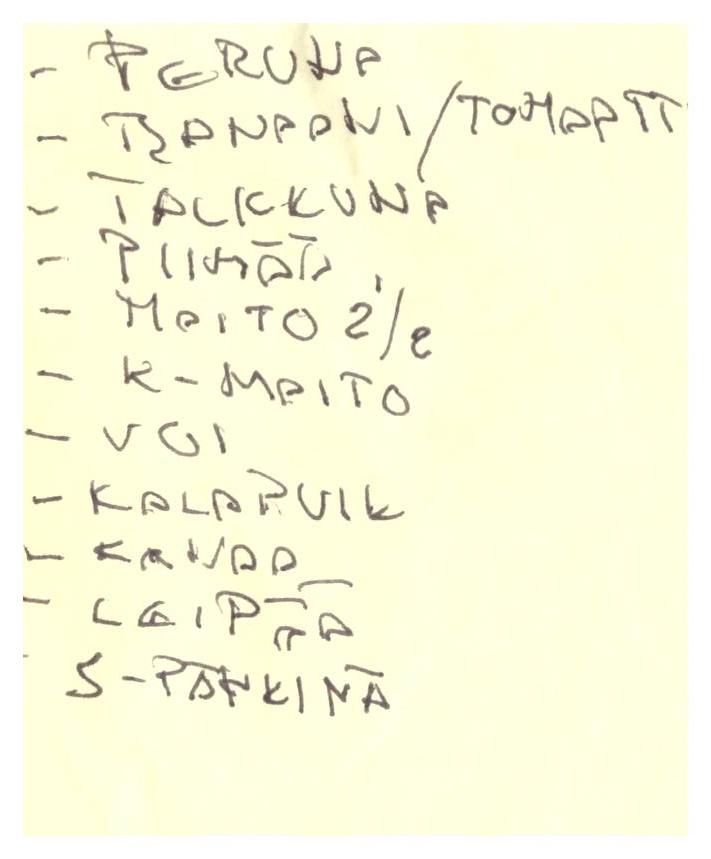 - PERUNA
- BANAANI/TOMAATTI
- TALKKUNA
- PIIMÄÄ
- MAITO
- K-MAITO
- VOI
- KALAPUIK
- KANAA
- LEIPÄÄ